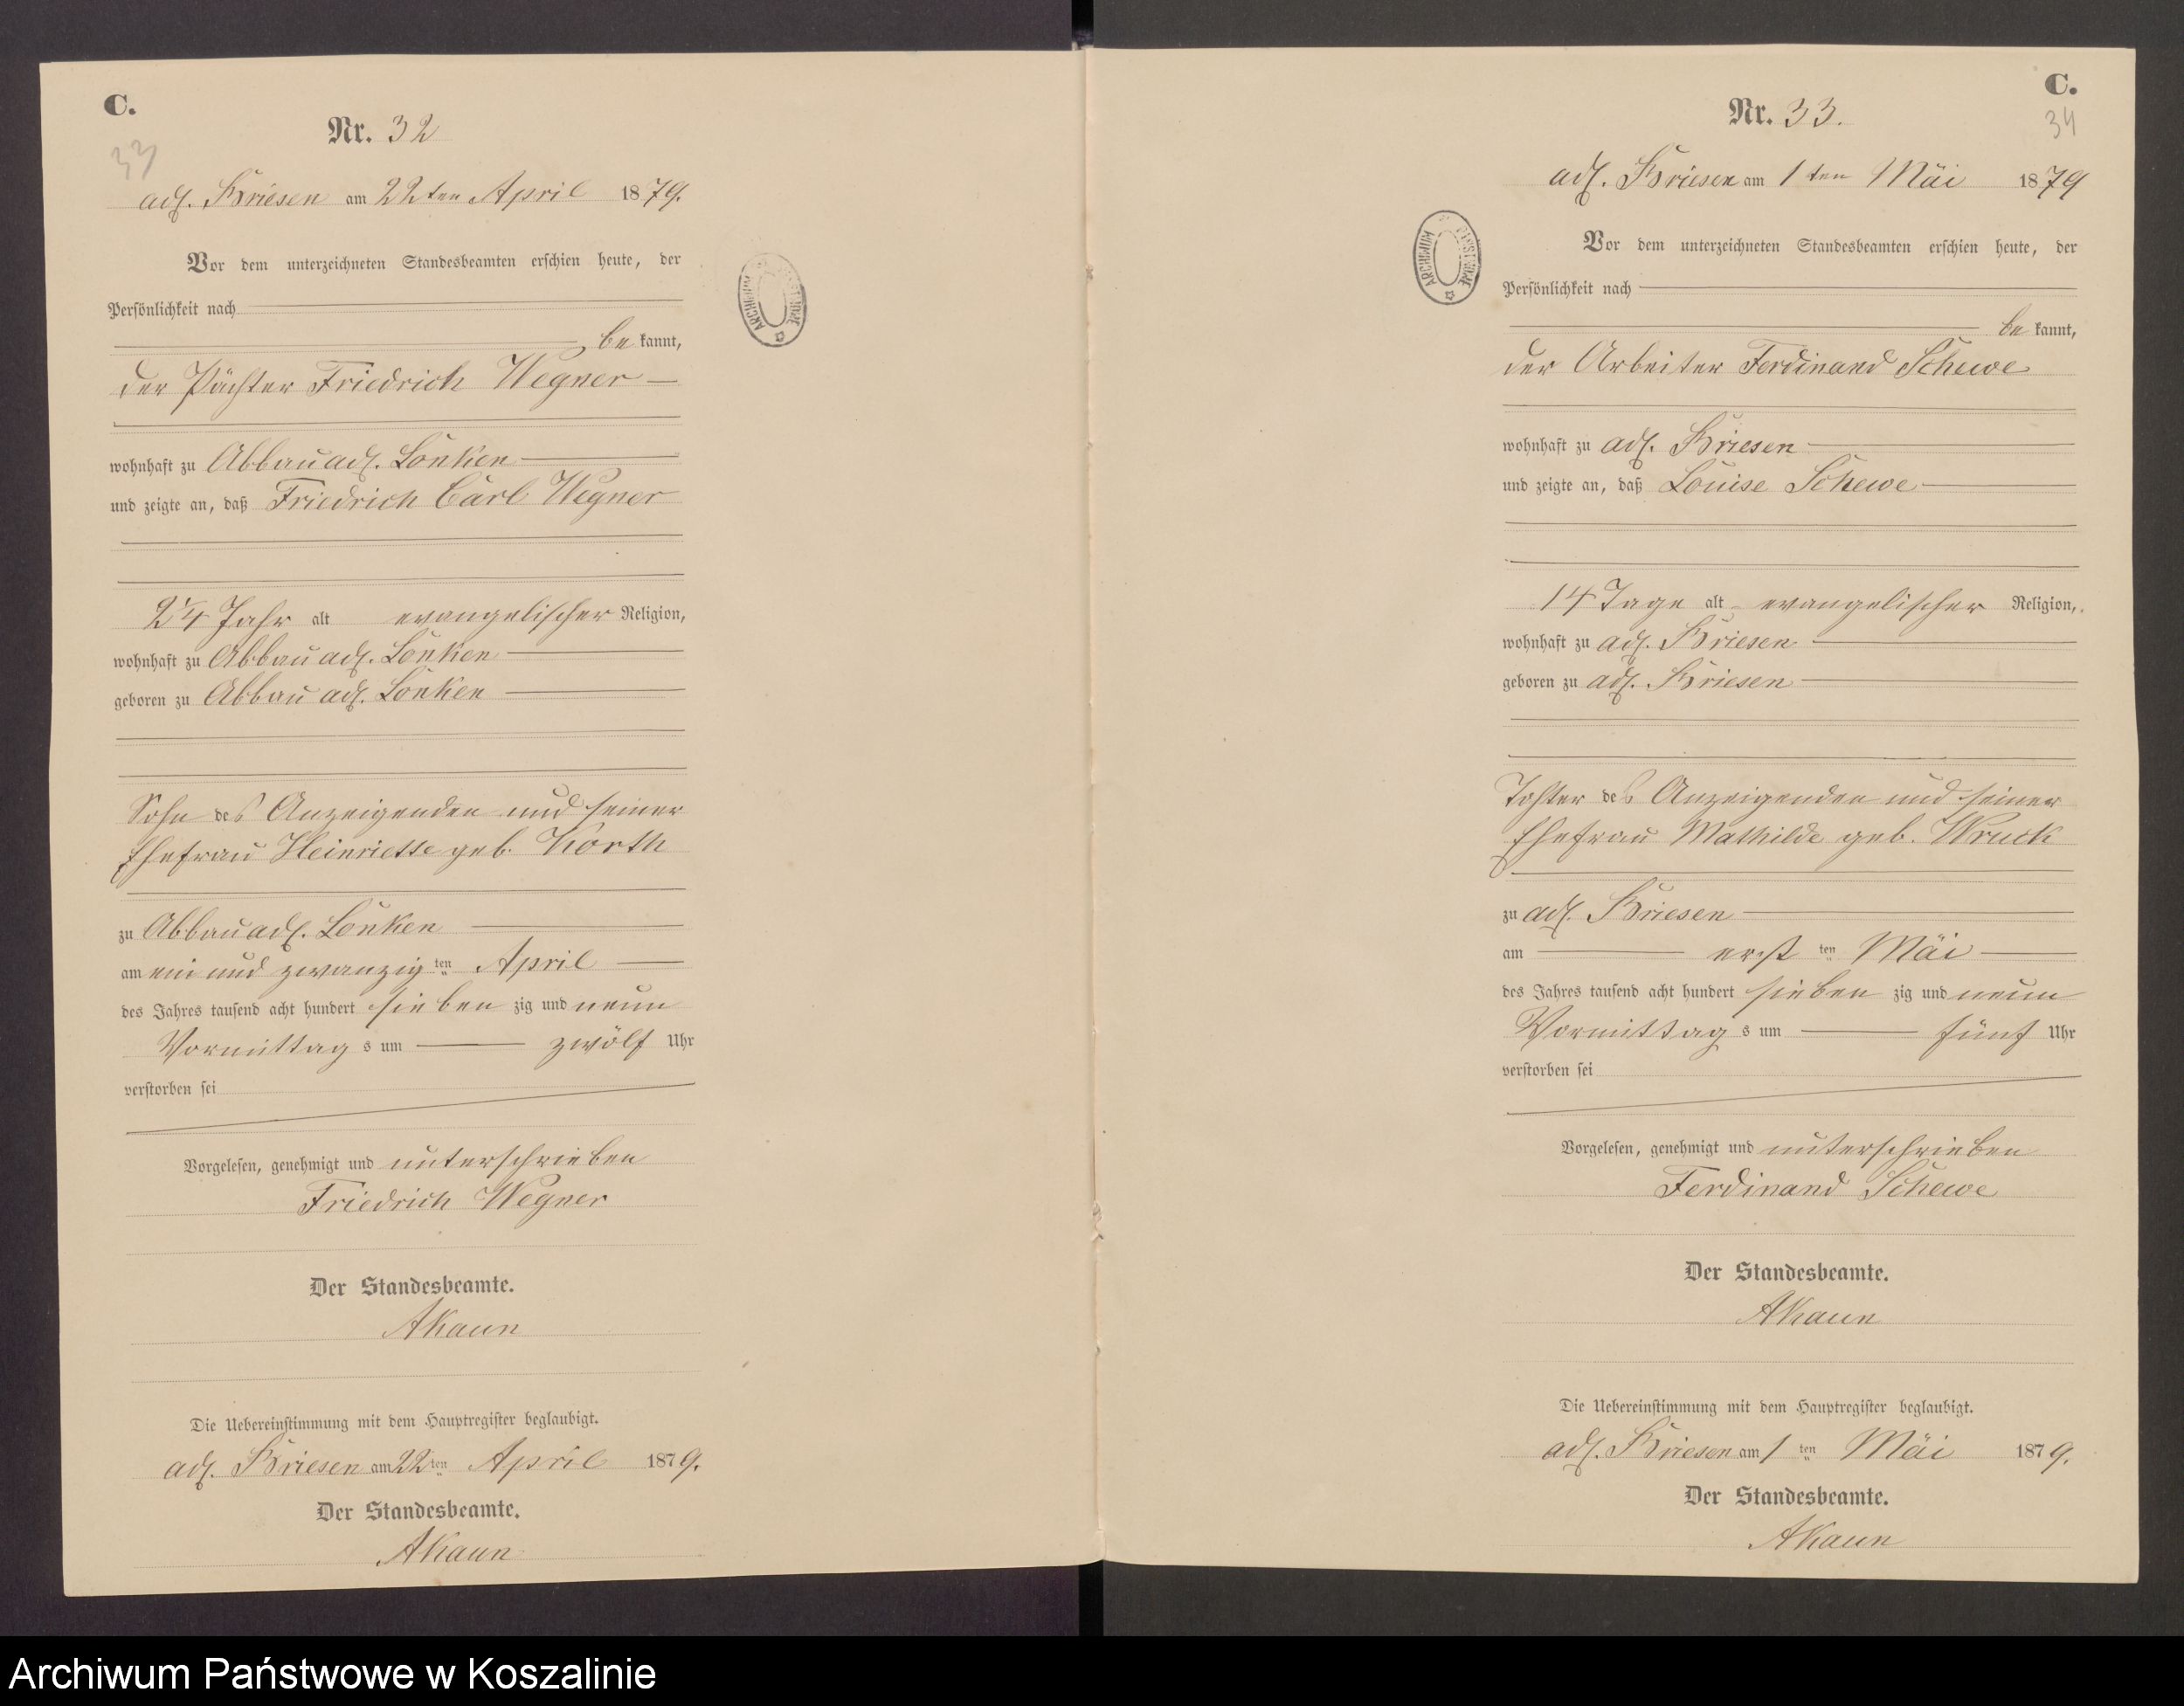 C.
Nr. 32
33
adl. Briesen am 22ten April 1879.
Vor dem unterzeichneten Standesbeamten erschien heute, der
Persönlichkeit nach
be kannt,
der Pächter Friedrich Wegner
wohnhaft zu Abbau adl. Lonken
und zeigte an, daß Friedrich Carl Wegner
2 1/4 Jahr alt evangelischer Religion,
wohnhaft zu Abbau adl. Lonken
geboren zu Abbau adl. Lonken
Sohn des Anzeigenden und seiner
Ehefrau Heinriette geb. Korth
zu Abbau adl. Lonken
am ein und zwanzig ten April
des Jahres tausend acht hundert sieben zig und neun
Vormittag s um zwölf Uhr
verstorben sei
Vorgelesen, genehmigt und unterschrieben
Friedrich Wegner
Der Standesbeamte.
AKaun
Die Uebereinstimmung mit dem Hauptregister beglaubigt.
adl. Briesen am 22 ten April 1879.
Der Standesbeamte.
AKaun
ARCHIWUM
C.
Nr. 33.
34
adl. Briesen am 1 ten Mai 1879
Vor dem unterzeichneten Standesbeamten erschien heute, der
Persönlichkeit nach
be kannt,
der Arbeiter Ferdinand Schewe
wohnhaft zu adl. Briesen
und zeigte an, daß Louise Schewe
14 Tage alt evangelischer Religion,
wohnhaft zu adl. Briesen
geboren zu adl. Briesen
Tochter des Anzeigenden und seiner
Ehefrau Mathilde geb. Wruck
zu adl. Briesen
am erst ten Mai
des Jahres tausend acht hundert sieben zig und neun
Vormittag s um fünf Uhr
verstorben sei
Vorgelesen, genehmigt und unterschrieben
Ferdinand Schewe
Der Standesbeamte.
AKaun
Die Uebereinstimmung mit dem Hauptregister beglaubigt.
adl. Briesen am 1 ten Mai 1879.
Der Standesbeamte.
AKaun
ARCHIWUM
Archiwum Państwowe w Koszalinie